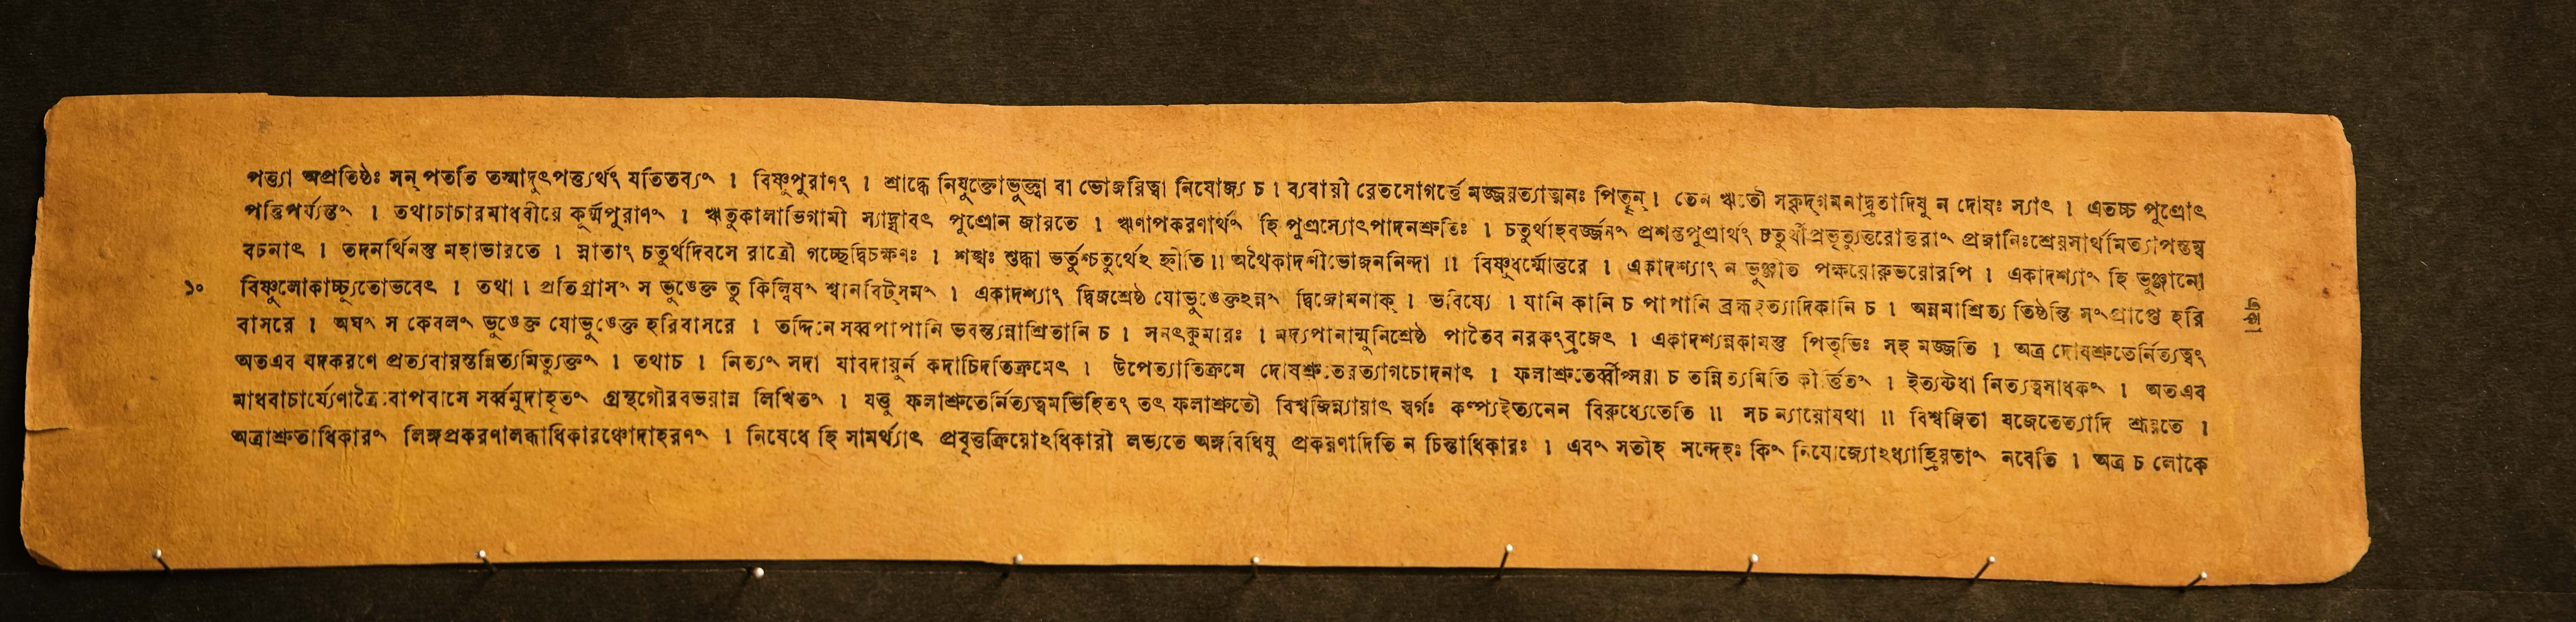 পত্ত্যা অপ্রতিষ্ঠঃ সন্ পততি তস্মাদুৎপত্ত্যর্থং যতিতব্যং । বিষ্ণুপুরাণং । শ্রাদ্ধে নিযুক্তোভুক্ত্বা বা ভোজয়িত্বা নিযোজ্য চ । ব্যবায়ী রেতসোগর্ত্তে মজ্জয়ত্যাত্মনঃ পিতৄন্ । তেন ঋতৌ সকৃদ্গমনাদ্ব্রতাদিষু ন দোষঃ স্যাৎ । এতচ্চ পুত্রোৎ
পত্তিপর্য্যন্তং । তথাচাচারমাধবীয়ে কূর্ম্মপুরাণং । ঋতুকালাভিগামী স্যাদ্যাবৎ পুত্রোন জায়তে । ঋণাপকরণার্থং হি পুত্রস্যোৎপাদনশ্রুতিঃ । চতুর্থাহবর্জ্জনং প্রশস্তপুত্রার্থং চতুর্থীপ্রভৃত্যুত্তরোত্তরাং প্রজানিঃশ্রেয়সার্থমিত্যাপস্তম্ব
বচনাৎ । তদনর্থিনস্তু মহাভারতে । স্নাতাং চতুর্থদিবসে রাত্রৌ গচ্ছেদ্বিচক্ষণঃ । শঙ্খঃ শুদ্ধা ভর্ত্তুশ্চতুর্থেঽহ্নীতি ॥ অথৈকাদশীভোজননিন্দা ॥ বিষ্ণুধর্ম্মোত্তরে । একাদশ্যাং ন ভুঞ্জীত পক্ষয়োরুভয়োরপি । একাদশ্যাং হি ভুঞ্জানো
১০ বিষ্ণুলোকাচ্চ্যুতোভবেৎ । তথা । প্রতিগ্রাসং স ভুঙেক্ত তু কিল্বিষং শ্বানবিট্সমং । একাদশ্যাং দ্বিজশ্রেষ্ঠ যোভুঙেক্তঽন্নং দ্বিজোমনাক্ । ভবিষ্যে । যানি কানি চ পাপানি ব্রহ্মহত্যাদিকানি চ । অন্নমাশ্রিত্য তিষ্ঠন্তি সংপ্রাপ্তে হরি
বাসরে । অঘং স কেবলং ভুঙেক্ত যোভুঙেক্ত হরিবাসরে । তদ্দিনে সর্ব্বপাপানি ভবন্ত্যন্নাশ্রিতানি চ । সনৎকুমারঃ । মদ্যপানান্মুনিশ্রেষ্ঠ পাতৈব নরকংব্রজেৎ । একাদশ্যন্নকামস্তু পিতৃভিঃ সহ মজ্জতি । অত্র দোষশ্রুতের্নিত্যত্বং
অতএব যদকরণে প্রত্যবায়স্তন্নিত্যমিত্যুক্তং । তথাচ । নিত্যং সদা যাবদায়ুর্ন কদাচিদতিক্রমেৎ । উপেত্যাতিক্রমে দোষশ্রুতেরত্যাগচোদনাৎ । ফলাশ্রুতের্ব্বীপ্সয়া চ তন্নিত্যমিতি কীর্ত্তিতং । ইত্যষ্টধা নিত্যত্বসাধকং । অতএব
মাধবাচার্য্যেণাত্রৈবোপবাসে সর্ব্বমুদাহৃতং গ্রন্থগৌরবভয়ান্ন লিখিতং । যত্তু ফলাশ্রুতের্নিত্যত্বমভিহিতং তৎ ফলাশ্রুতৌ বিশ্বজিন্ন্যায়াৎ স্বর্গঃ কল্প্যইত্যনেন বিরুধ্যেতেতি ॥ সচ ন্যায়োযথা ॥ বিশ্বজিতা যজেতেত্যাদি শ্রূয়তে ।
অত্রাশ্রুতাধিকারং লিঙ্গপ্রকরণালব্ধাধিকারঞ্চোদাহরণং । নিষেধে হি সামর্থ্যাৎ প্রবৃত্তক্রিয়োঽধিকারী লভ্যতে অঙ্গবিধিষু প্রকরণাদিতি ন চিন্তাধিকারঃ । এবং সতীহ সন্দেহঃ কিং নিযোজ্যোঽধ্যাহ্রিয়তাং নবেতি । অত্র চ লোকে